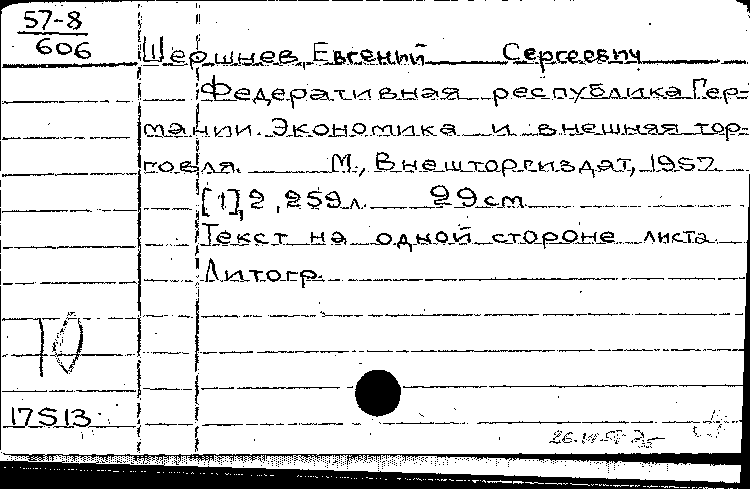 57-8
606
Шершнев, Евгений Сергеевич
Федеративная республика Гер-
мании. Экономика и внешняя тор-
говля. М., Внешторгиздат, 1957
[1], 2, 259 л. 29 см
Текст на одной стороне листа
Литогр.
10
17513